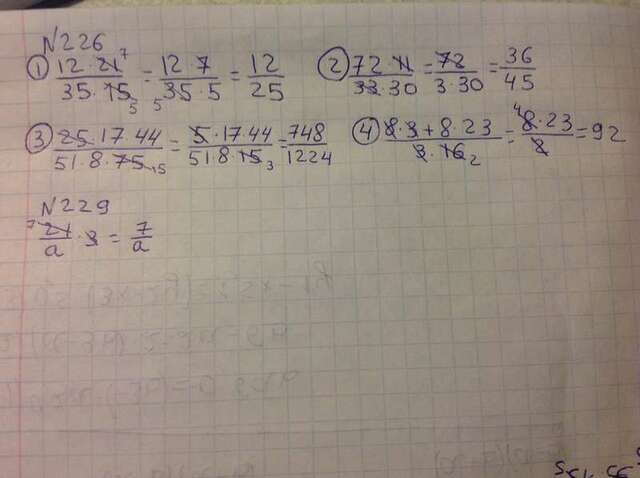 N226
① 12·21 7/35·15 5 = 12·7/5 35·5 = 12/25 ② 72·11/33·30 = 72/3·30 = 36/45
③ 25·17·44/51·8·75 15 = 5·17·44/51·8·15 3 = 748/1224 ④ 8·3+8·23/3·16 2 = 4 8·23/2 = 92
N229
7 21/a · 3 = 7/a